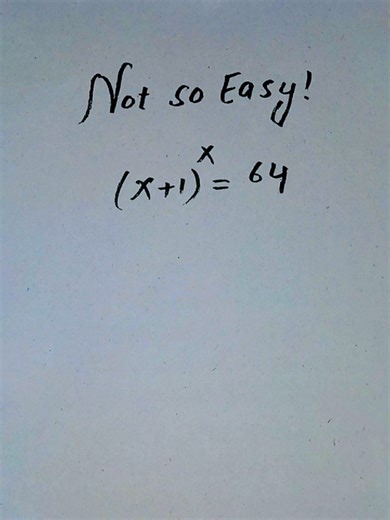 Not so Easy!
(x+1)^x = 64